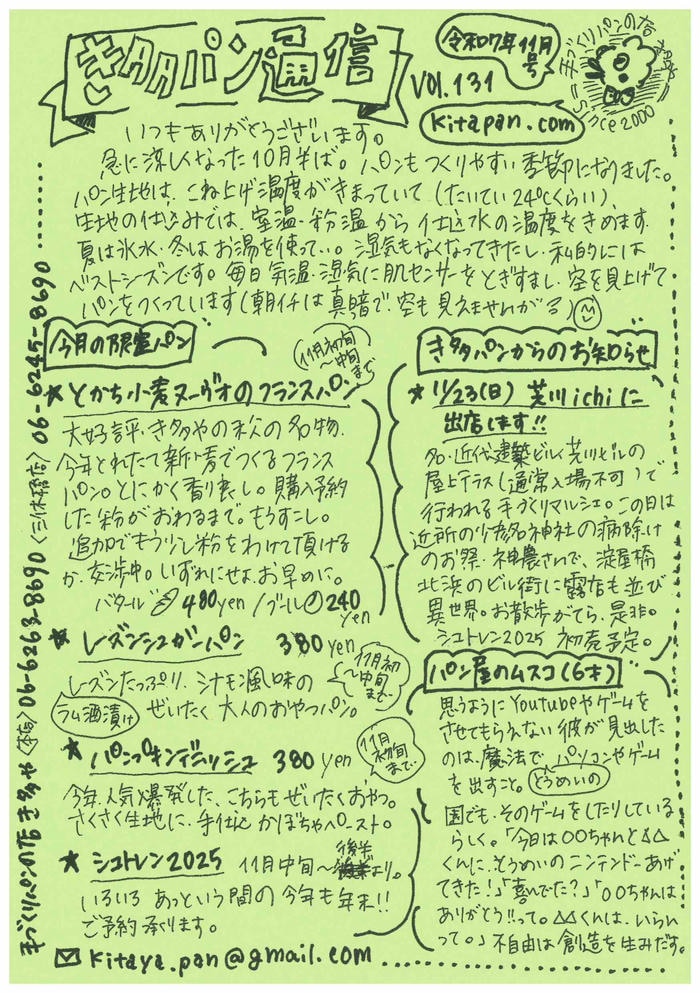 きタタパン通信
令和7年11月号
VOL.131
kitapan.com
手づくりパンの店 きタや
since 2000
いつもありがとうございます。
急に涼しくなった10月半ば。パンもつくりやすい季節になりました。
パン生地は、こね上げ温度がきまっていて(たいてい24℃くらい)、
生地の仕込みでは、室温・粉温から仕込水の温度をきめます。
夏は氷水・冬はお湯を使って…。湿気もなくなってきたし、私的には
ベストシーズンです。毎日気温・湿気に肌センサーをとぎすまし、空を見上げて
パンをつくっています(朝イチは真暗で、空も見えませんがる)
今月の限定パン
11月初旬〜中旬まで
★とかち小麦ヌーヴォのフランスパン
大好評、き多やの秋の名物。
今年とれたて新小麦でつくるフランス
パン。とにかく香り良し。購入予約
した粉がおわるまで。もうすこし。
追加でもう少し粉をわけて頂ける
か、交渉中。いずれにせよ、お早めに。
バタール 480yen / ブール 240yen
★レーズンシュガーパン 380yen
11月初〜中旬まで
レーズンたっぷり、シナモン風味の
ラム酒漬け
ぜいたく大人のおやつパン。
★パンプキンデニッシュ 380yen
11月初旬まで
今年、人気爆発した、こちらもぜいたくおやつ。
さくさく生地に、手仕込かぼちゃペースト。
★シュトレン2025 11月中旬〜後半より。
いろいろあっという間の今年も年末!!
ご予約承ります。
き多パンからのお知らせ
★11/23(日) 芝川ichiに
出店します!!
名・近代建築ビル、芝川ビルの
屋上テラス(通常入場不可)で
行われる手づくりマルシェ。この日は
近所の少彦名神社の病除け
のお祭・神農さんで、淀屋橋
北浜のビル街に露店も並び
異世界。お散歩がてら、是非。
シュトレン2025 初売予定。
パン屋のムスコ(6才)
思うようにYoutubeやゲームを
させてもらえない彼が見出した
のは、魔法で、パソコンやゲーム
を出すこと。
とうめいの
園でも、そのゲームをしたりしている
らしく。「今日は〇〇ちゃんと△△
くんに、とうめいのニンテンドーあげ
てきた!」「喜んでた?」「〇〇ちゃんは
ありがとう!!って。△△くんは、いらん
って。」不自由は創造を生みだす。
手づくりパンの店 き多や〈本店〉06-6263-8690〈三休橋店〉06-6245-8690
kitaya.pan@gmail.com